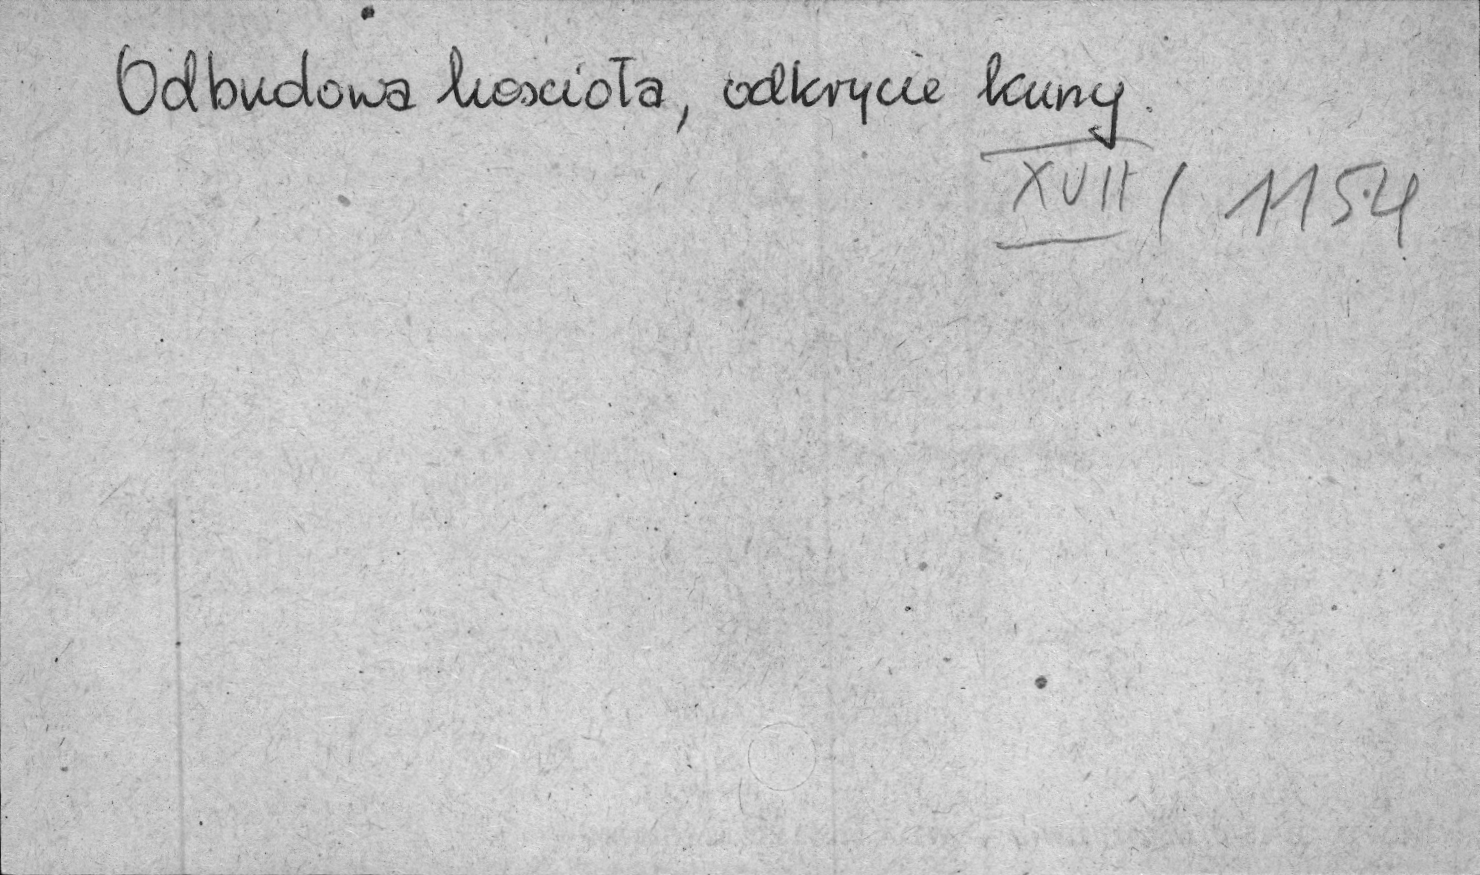 Odbudowa kościoła, odkrycie kuny.
XVII / 1154